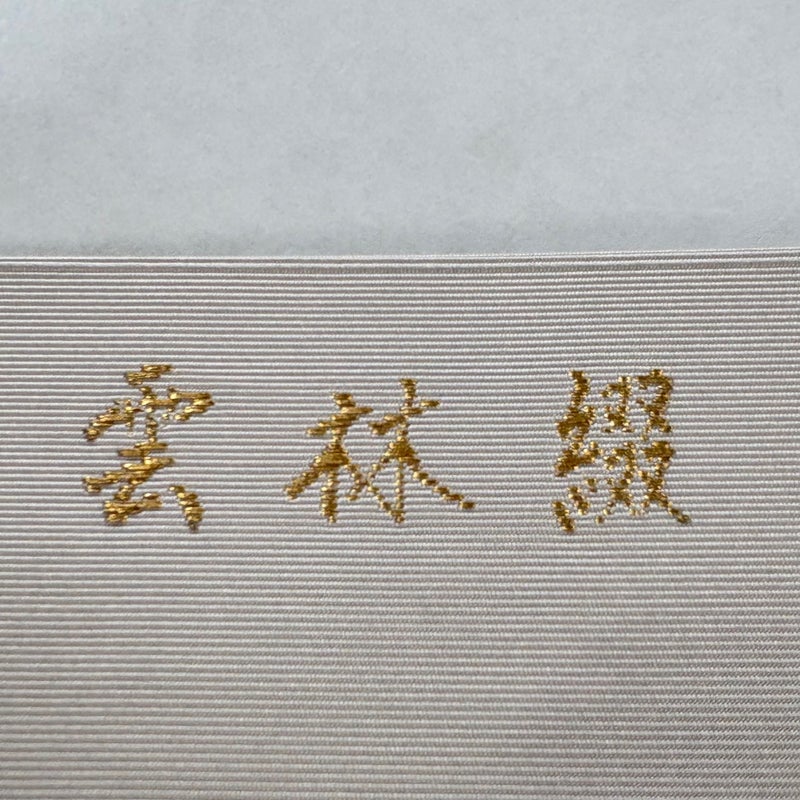 雲林綴